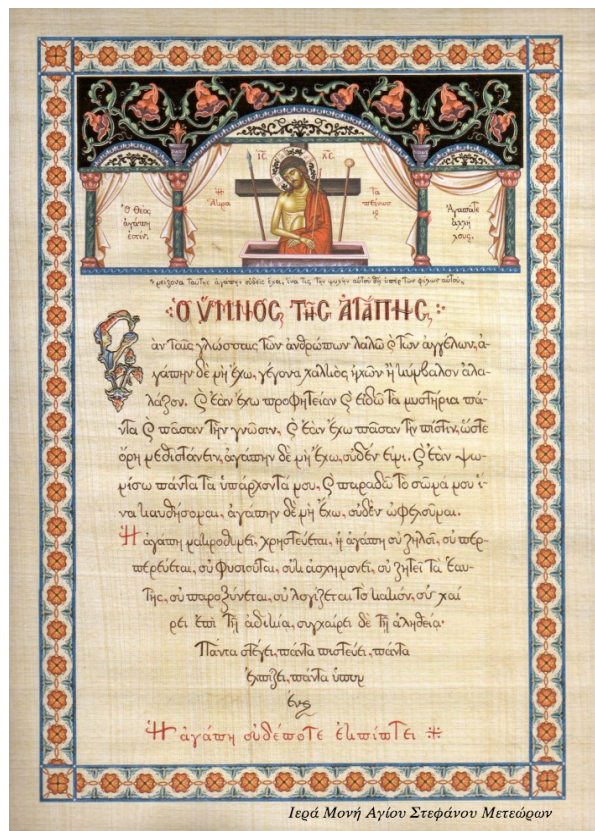 ΙΣ ΧΣ
Ὁ Θεὸς
ἀγάπη
ἐστίν.
Ἡ
Ἄκρα
Ταπείνωσις
Ἀγαπᾶτε
ἀλλήλους.
μείζονα ταύτης ἀγάπην οὐδεὶς ἔχει, ἵνα τις τὴν ψυχὴν αὐτοῦ θῇ ὑπὲρ τῶν φίλων αὐτοῦ.
Ὁ ὝΜΝΟΣ ΤΗΣ ἈΓΆΠΗΣ
Ἐὰν ταῖς γλώσσαις τῶν ἀνθρώπων λαλῶ ϗ τῶν ἀγγέλων, ἀ-
γάπην δὲ μὴ ἔχω, γέγονα χαλκὸς ἠχῶν ἢ κύμβαλον ἀλα-
λάζον. ϗ ἐὰν ἔχω προφητείαν ϗ εἰδῶ τὰ μυστήρια πά-
ντα ϗ πᾶσαν τὴν γνῶσιν, ϗ ἐὰν ἔχω πᾶσαν τὴν πίστιν, ὥστε
ὄρη μεθιστάνειν, ἀγάπην δὲ μὴ ἔχω, οὐδέν εἰμι. ϗ ἐὰν ψω-
μίσω πάντα τὰ ὑπάρχοντά μου, ϗ παραδῶ τὸ σῶμά μου ἵ-
να καυθήσομαι, ἀγάπην δὲ μὴ ἔχω, οὐδὲν ὠφελοῦμαι.
Ἡ ἀγάπη μακροθυμεῖ, χρηστεύεται, ἡ ἀγάπη οὐ ζηλοῖ, οὐ περ-
περεύεται, οὐ φυσιοῦται, οὐκ ἀσχημονεῖ, οὐ ζητεῖ τὰ ἑαυ-
τῆς, οὐ παροξύνεται, οὐ λογίζεται τὸ κακόν, οὐ χαί
ρει ἐπὶ τῇ ἀδικίᾳ, συγχαίρει δὲ τῇ ἀληθείᾳ·
Πάντα στέγει, πάντα πιστεύει, πάντα
ἐλπίζει, πάντα ὑπομ
ένει
Ἡ ἀγάπη οὐδέποτε ἐκπίπτει
Ιερά Μονή Αγίου Στεφάνου Μετεώρων